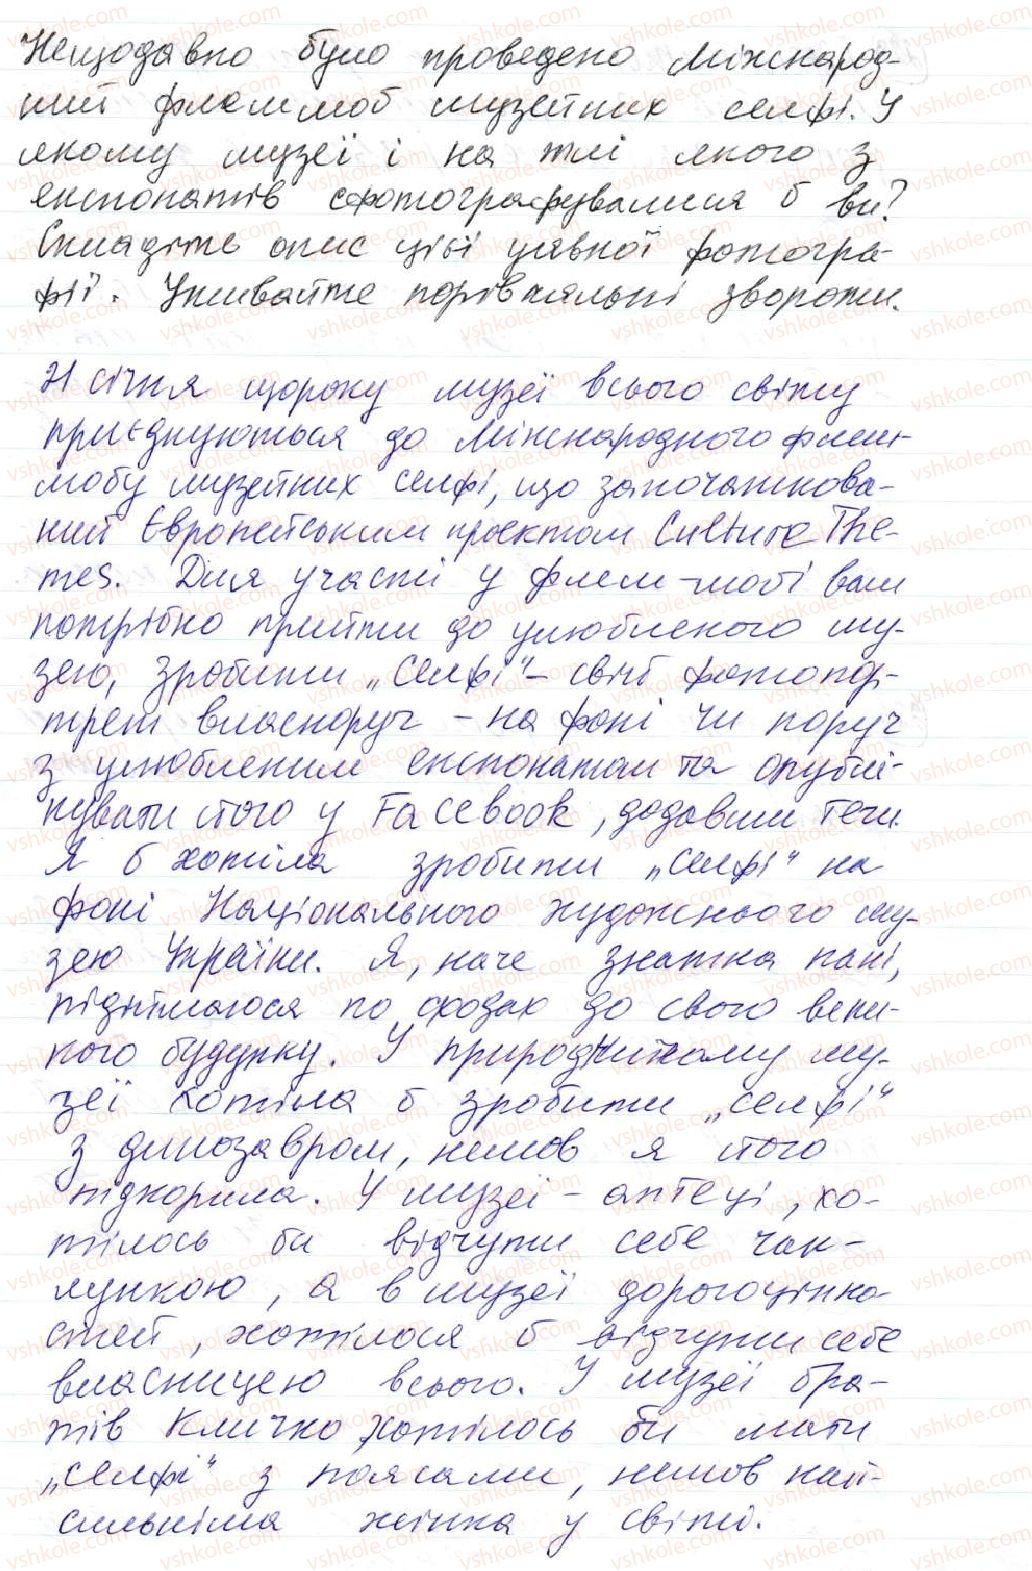 Нещодавно було проведено Міжнарод-
ний флешмоб музейних селфі. У
якому музеї і на тлі якого з
експонатів сфотографувалися б ви?
Складіть опис цієї уявної фотогра-
фії. Уживайте порівняльні звороти.
21 січня щороку музеї всього світу
приєднуються до Міжнародного флеш-
мобу музейних селфі, що започаткова-
ний Європейським проєктом Culture The-
mes. Для участі у флеш-мобі вам
потрібно прийти до улюбленого му-
зею, зробити „селфі“ – свій фотопор-
трет власноруч – на фоні чи поруч
з улюбленим експонатом та опублі-
кувати його у Facebook, додавши теги.
Я б хотіла зробити „селфі“ на
фоні Національного художнього му-
зею України. Я, наче знатна пані,
піднімаюся по сходах до свого вели-
кого будунку. У природничому му-
зеї хотіла б зробити „селфі“
з динозавром, немов я його
підкорила. У музеї – аптеці, хо-
тілось би відчути себе чак-
лункою, а в музеї дорогоцінно-
стей, хотілося б відчути себе
власницею всього. У музеї бра-
тів Кличко хотілось би мати
„селфі“ з поясами, немов най-
сильніша жінка у світі.